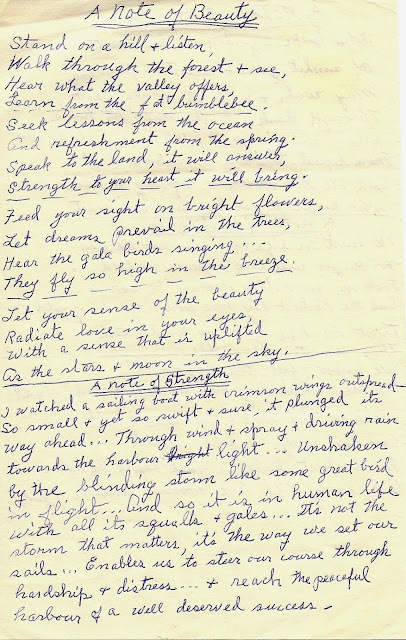 A Note of Beauty
Stand on a hill + listen,
Walk through the forest + see,
Hear what the valley offers,
Learn from the fat bumblebee.
Seek lessons from the ocean
And refreshment from the spring.
Speak to the land, it will answer,
Strength to your heart it will bring.
Feed your sight on bright flowers,
Let dreams prevail in the trees,
Hear the gala birds singing...
They fly so high in the breeze.
Let your sense of the beauty
Radiate love in your eyes,
With a sense that is uplifted
As the stars + moon in the sky.
A note of Strength
I watched a sailing boat with crimson wings outspread
So small + yet so swift + sure, it plunged its
way ahead... Through wind + spray + driving rain
towards the harbour light... Unshaken
by the blinding storm like some great bird
in flight... And so it is in human life
with all its squalls + gales... It's not the
storm that matters, it's the way we set our
sails... Enables us to steer our course through
hardship + distress... + reach the peaceful
harbour of a well deserved success -